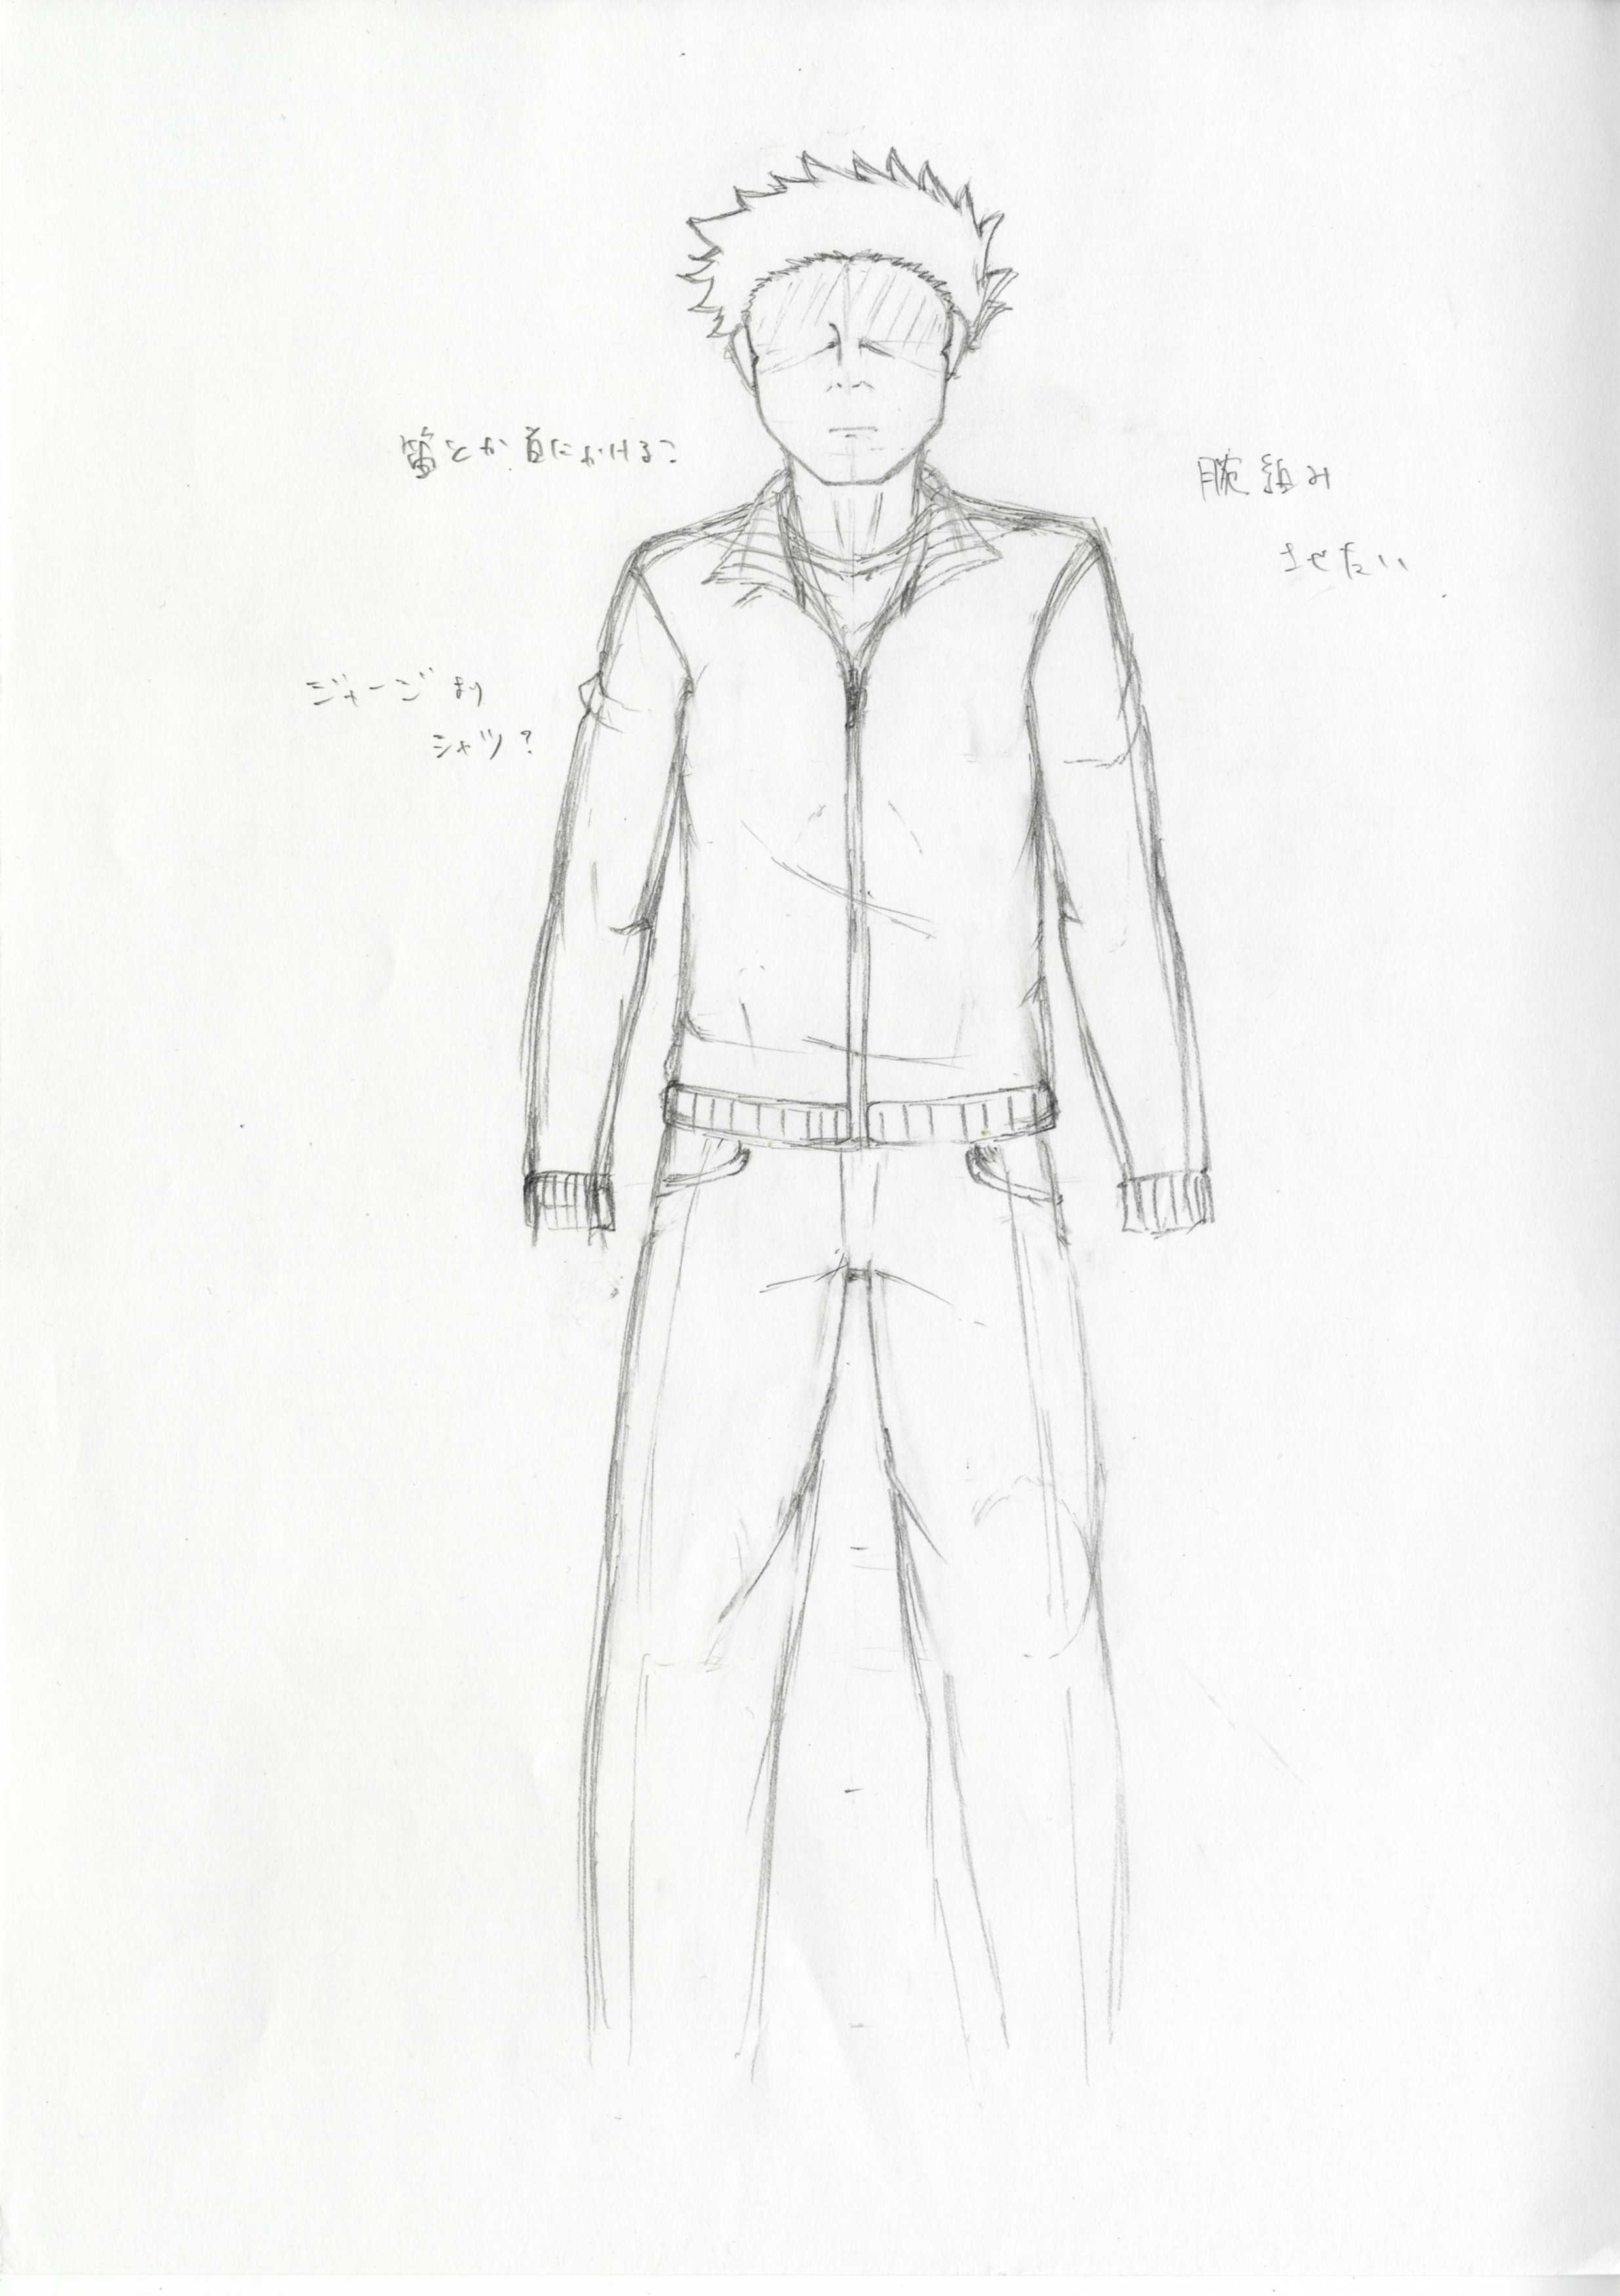 笛とか首にかける?
腕組み
させたい
ジャージより
シャツ?